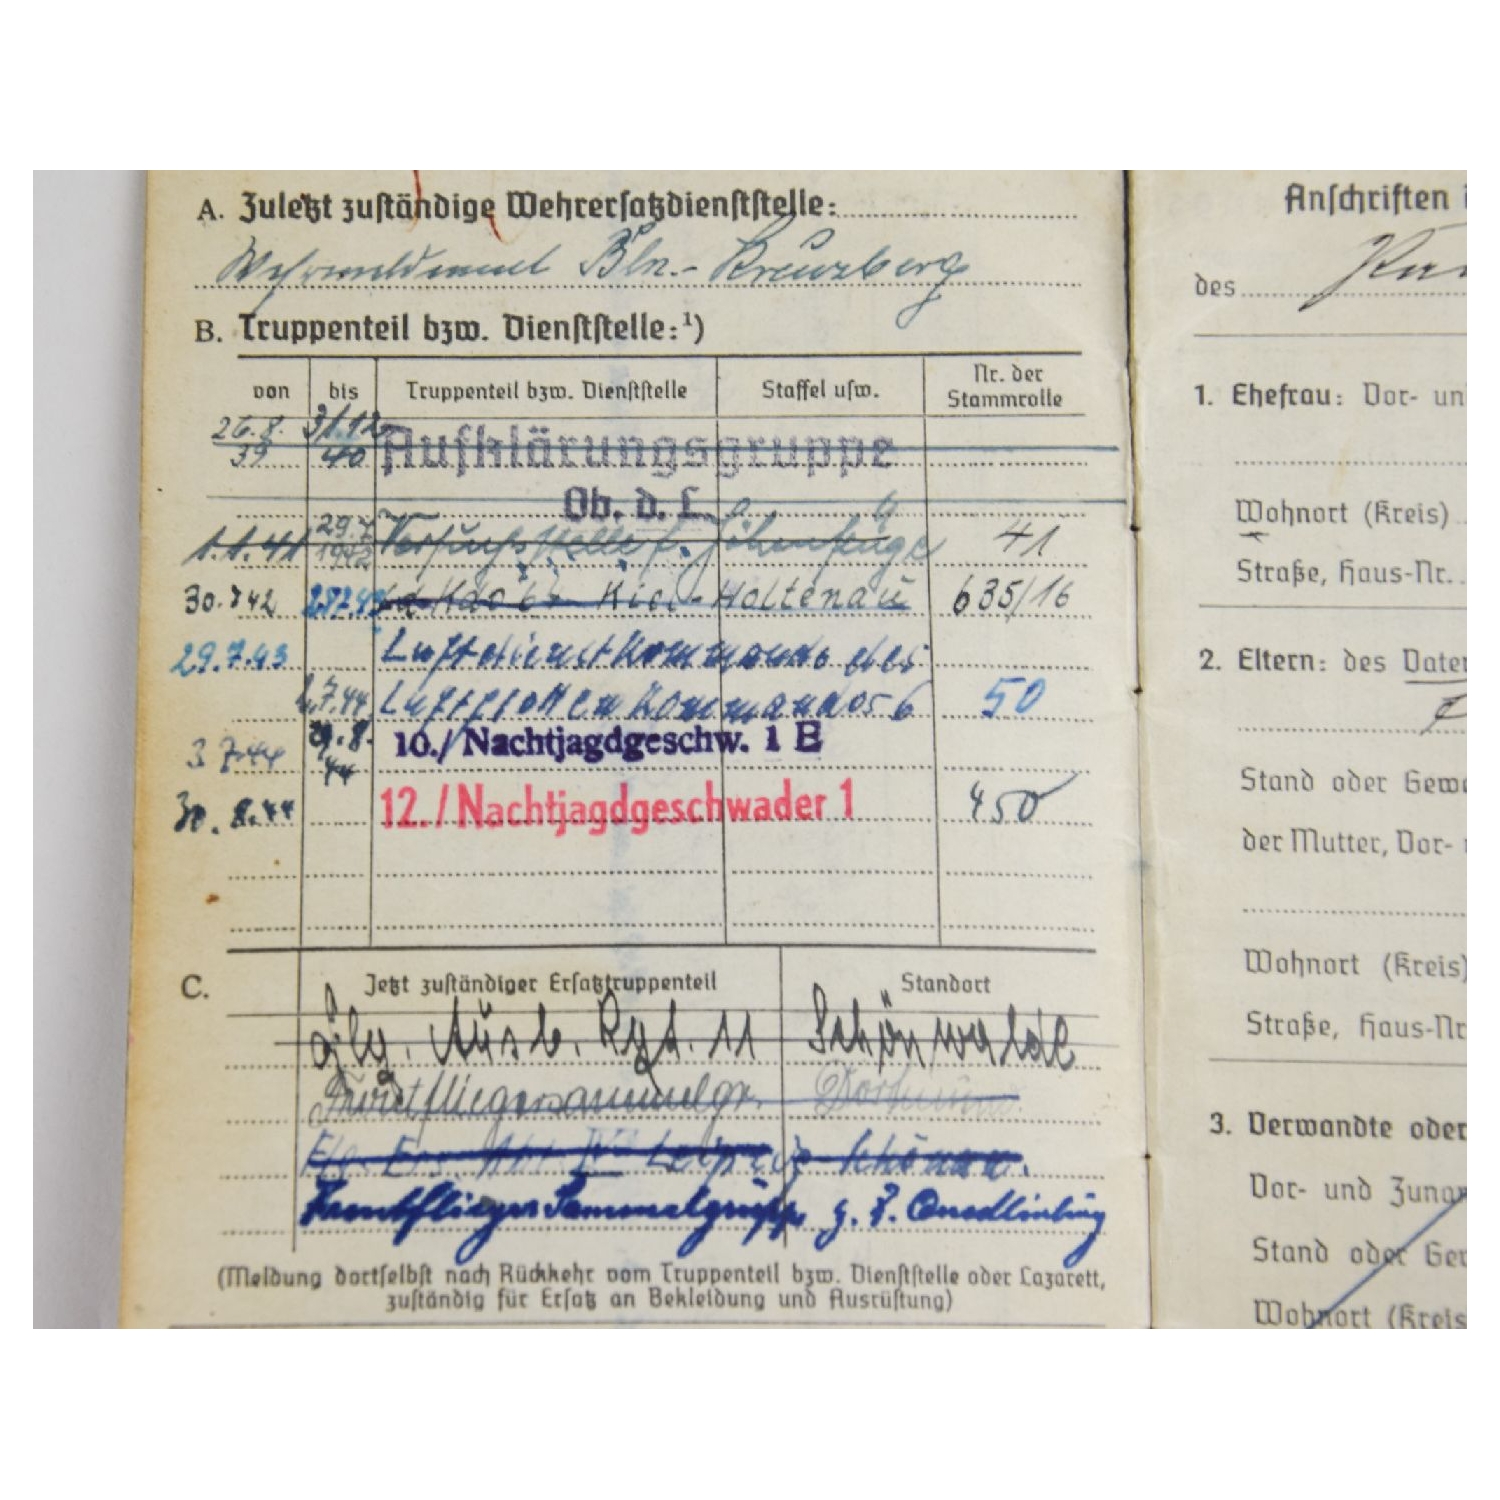 A. Zuletzt zuständige Wehrersatzdienststelle:
Wehrmeldeamt Bln.- Kreuzberg
B. Truppenteil bzw. Dienststelle:¹)
von bis Truppenteil bzw. Dienststelle Staffel usw. Nr. der Stammrolle
26.8. 39 31.12. 40 Aufklärungsgruppe
Ob. d. L.
1.1.41 29.7 1942 Versuchsstelle f. Höhenflüge 41
30.7.42 28.7.43 Kiel-Holtenau 635/16
29.7.43 Luftdienstkommando des
2.7.44 Luftflottenkommandos 6 50
3.7.44 29.8. 44 10./Nachtjagdgeschw. 1 E
30.8.44 12./Nachtjagdgeschwader 1 450
C. Jetzt zuständiger Ersatztruppenteil Standort
Flg. Ausb. Rgt. 11 Schönwalde
Frontfliegersammelgr. Dortmund
Flg. Ers. Abt. Leipzig-Schönau.
Frontflieger Sammelgruppe z. Z. Quedlinburg
(Meldung dortselbst nach Rückkehr vom Truppenteil bzw. Dienststelle oder Lazarett,
zuständig für Ersatz an Bekleidung und Ausrüstung)
Anschriften
des
1. Ehefrau: Vor- un
Wohnort (Kreis)
Straße, Haus-Nr.
2. Eltern: des Vate
Stand oder Gewe
der Mutter, Vor-
Wohnort (Kreis)
Straße, Haus-Nr
3. Verwandte oder
Vor- und Zunam
Stand oder Ger
Wohnort (Kreis